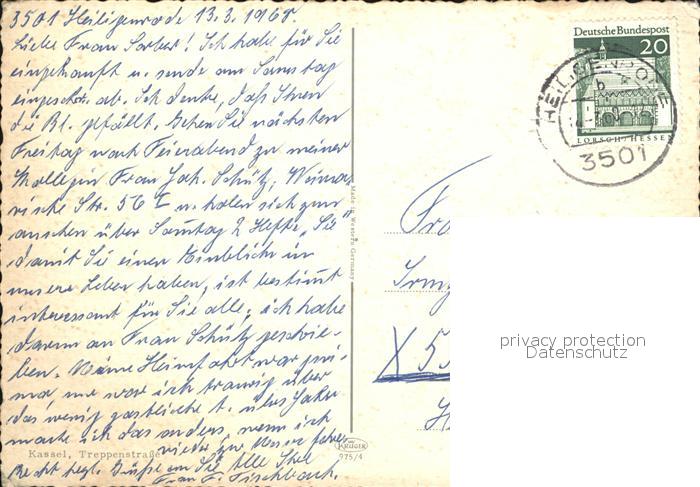 3501 Heiligenrode 13.3.1968.
Liebe Frau! Ich habe für Sie
eingekauft u. sende am Samstag
ab. Ich denke, daß Ihnen
die Bl. gefällt. Gehen Sie nächsten
Freitag nach Feierabend zu meiner
Kollegin Frau Joh. Schütz, Weima
rische Str. 56 I u. holen sich zum
anschen über Sonntag 2 Hefte, "Sie"
damit Sie einen Einblick in
unsere Leben haben, ist bestimmt
interessant für Sie alle, ich habe
darum an Frau Schütz geschrie-
ben. Meine Heimfahrt war pri-
ma, nur war ich traurig über
das wenig
mache ich das anders, wenn ich
wieder zur Messe fahre.
Recht herzl. Grüße an Sie Alle Ihre
Frau F. Fischbach.
Kassel, Treppenstraße
Made in Western Germany
KRÜGER
975/4
Deutsche Bundespost
20
LORSCH/HESSEN
HEILIGENRODE
b
3501
Fr
Irm
X 5
H
privacy protection
Datenschutz